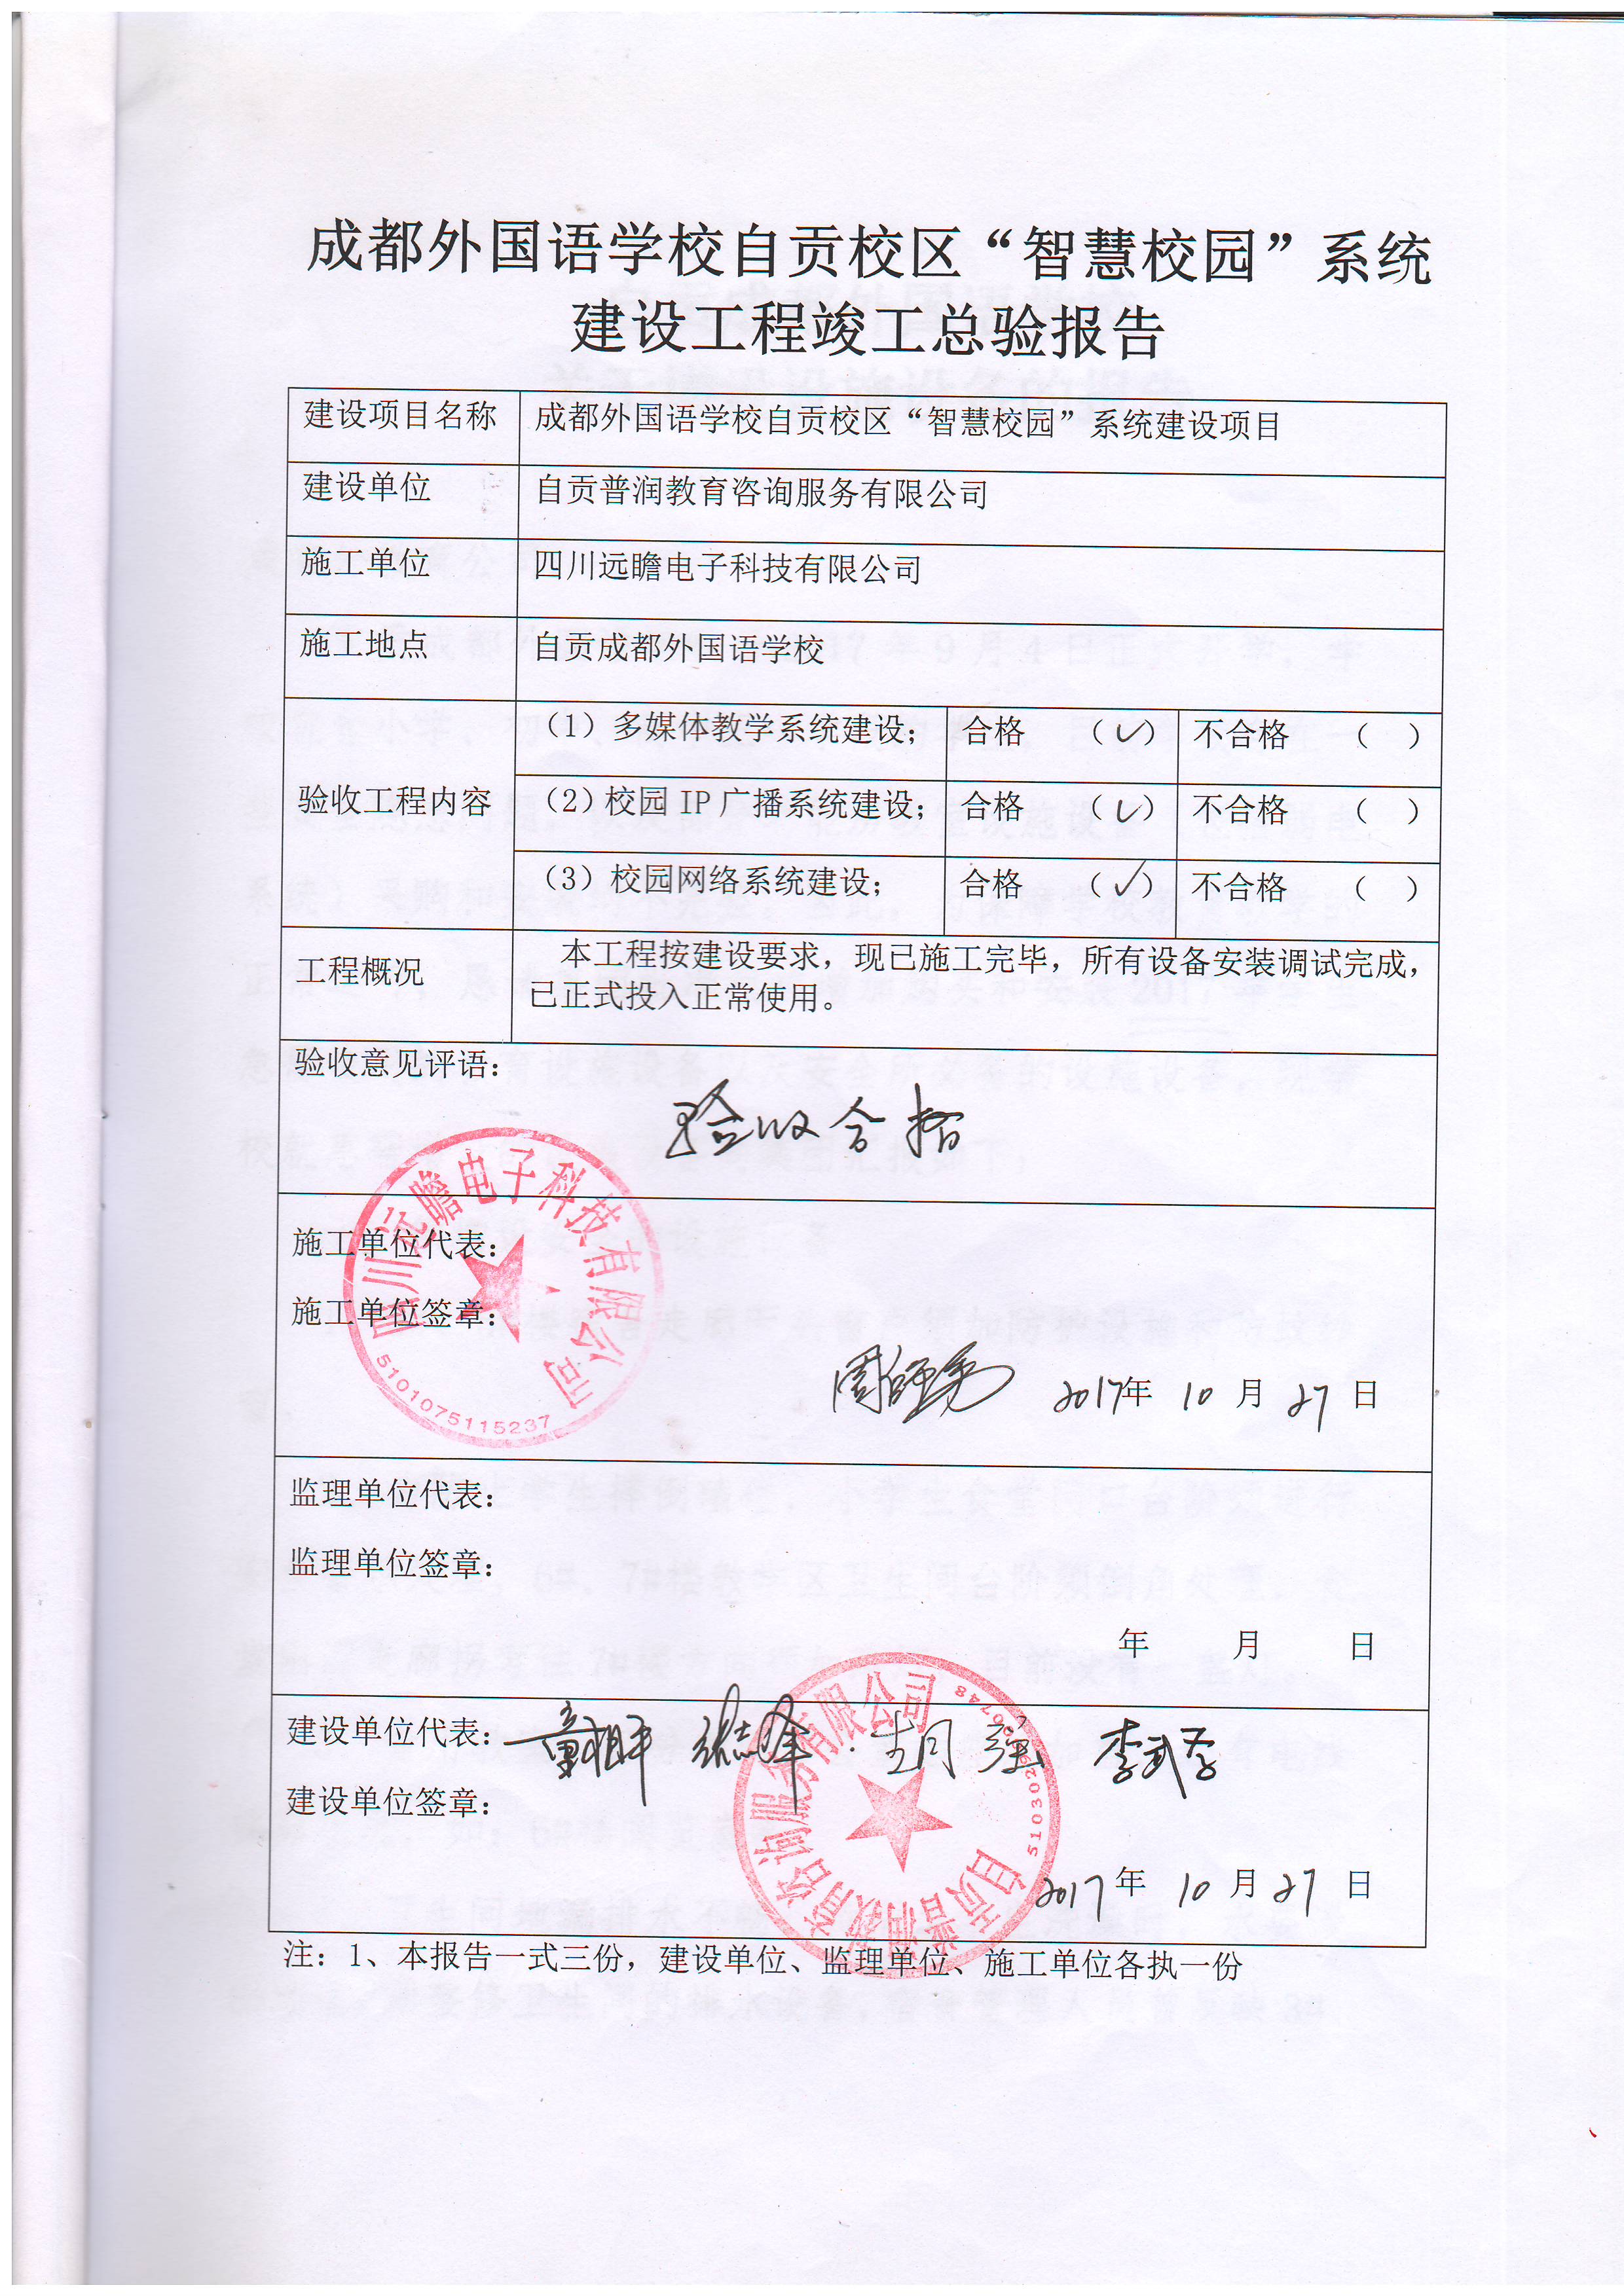 成都外国语学校自贡校区“智慧校园”系统
建设工程竣工总验报告
建设项目名称 成都外国语学校自贡校区“智慧校园”系统建设项目
建设单位 自贡普润教育咨询服务有限公司
施工单位 四川远瞻电子科技有限公司
施工地点 自贡成都外国语学校
验收工程内容
（1）多媒体教学系统建设； 合格 （✓） 不合格 （ ）
（2）校园 IP 广播系统建设； 合格 （✓） 不合格 （ ）
（3）校园网络系统建设； 合格 （✓） 不合格 （ ）
工程概况 本工程按建设要求，现已施工完毕，所有设备安装调试完成，
已正式投入正常使用。
验收意见评语：
验收合格
施工单位代表：
施工单位签章：
四川远瞻电子科技有限公司
5101075115237
2017年 10 月 27 日
监理单位代表：
监理单位签章：
年 月 日
建设单位代表：
建设单位签章：
自贡普润教育咨询服务有限公司
2017 年 10 月 27 日
注：1、本报告一式三份，建设单位、监理单位、施工单位各执一份